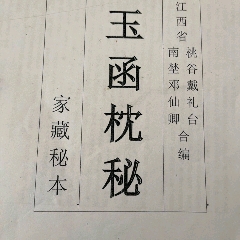 江西省
桃谷戴礼台
南埜邓仙卿
合编
玉函枕秘
家藏秘本